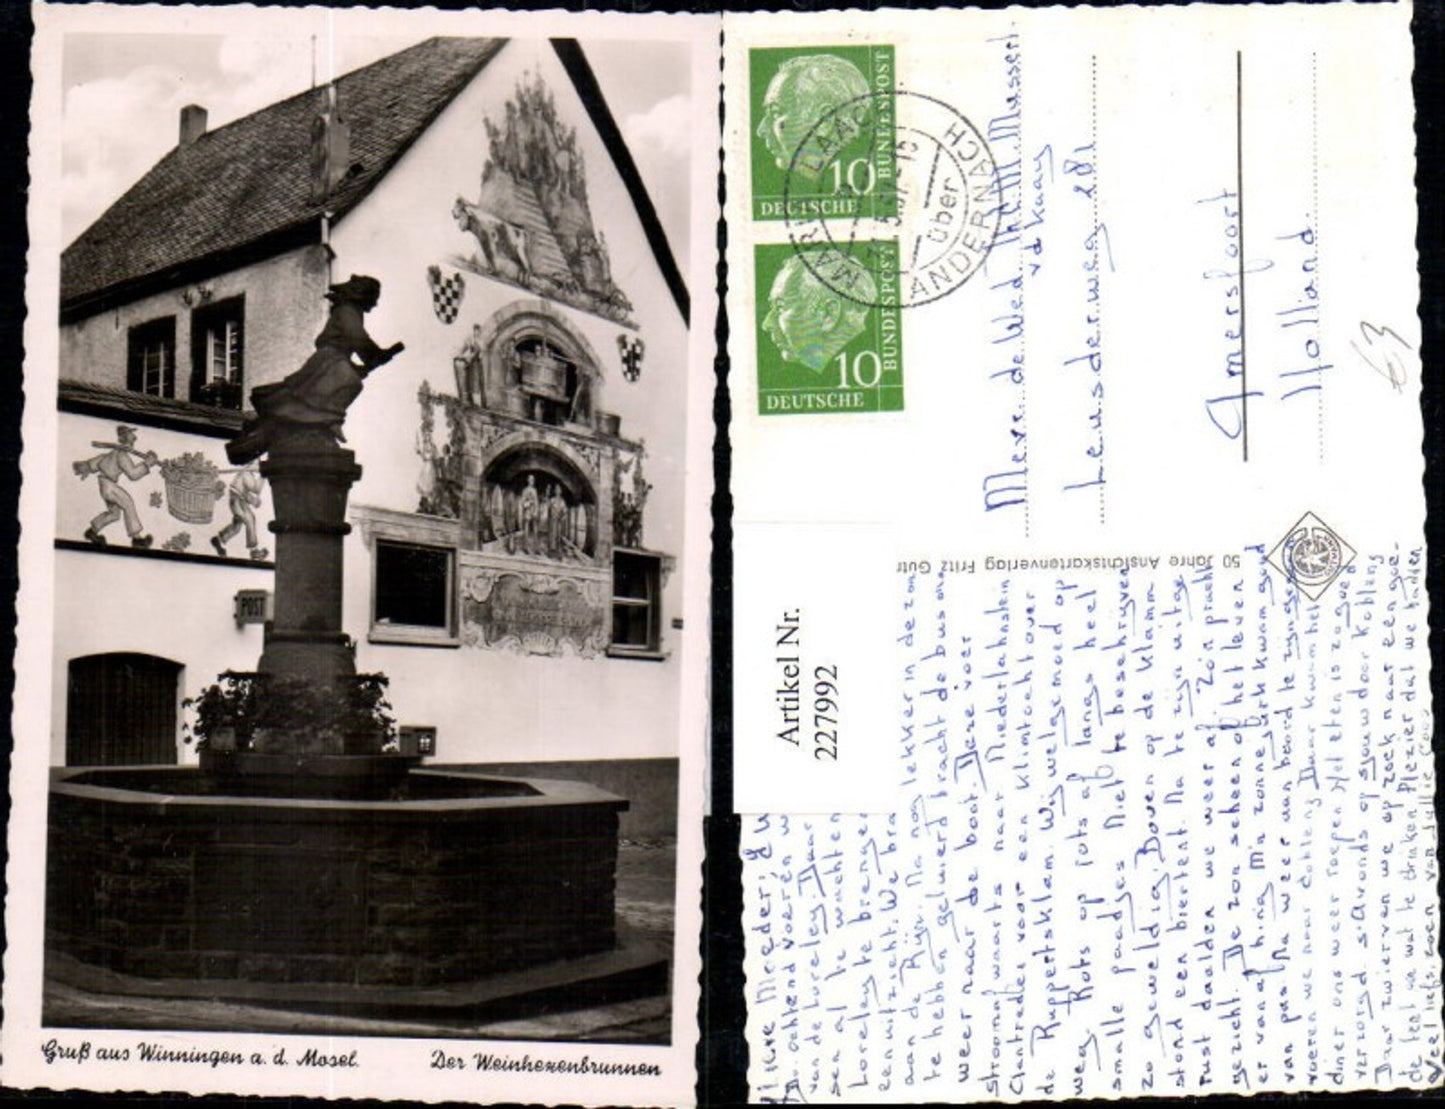 POST
Gruß aus Winningen a. d. Mosel.
Der Weinhexenbrunnen
10
BUNDESPOST
DEUTSCHE
10
BUNDESPOST
DEUTSCHE
MARIA LAACH
über
ANDERNACH
Mevr. de Wed. Th. M. Mussert
vd Kaay
Leusderweg 281
Amersfoort
Holland.
€3
50 Jahre Ansichtskartenverlag Fritz Gutm
Artikel Nr.
227992
Lieve Moeder;
Do. ochtend voeren
van de Loreley. Daar
sen al te wachten
Loreley te brengen
een uitzicht. We bra
aan de Rijn. Na nog lekker in de zon
te hebben geluierd bracht de bus ons
weer naar de boot. Deze voer
stroomafwaarts naar Niederlahnstein
voor een klimtocht over
de Ruppertsklam. Wij welgemoed op
weg. Rots op rots af langs heel
smalle paadjes. Niet te beschrijven
zo geweldig. Boven op de Klamm
stond een biertent. Na te zijn uitge
rust daalden we weer af. Zo'n pracht
gezicht. De zon scheen op het leven
er vanaf hing. M'n zonnejurk kwam goed
van pas. Na weer aan boord te zijn
voeren we naar Daar kwam het
diner ons weer roepen. Het eten is zo goed
verzorgd. s'Avonds op sjouw door
Daar zwierven we op zoek naar een
de tent om wat te drinken. Plezier dat we hadden
Veel liefs, zoen van jullie